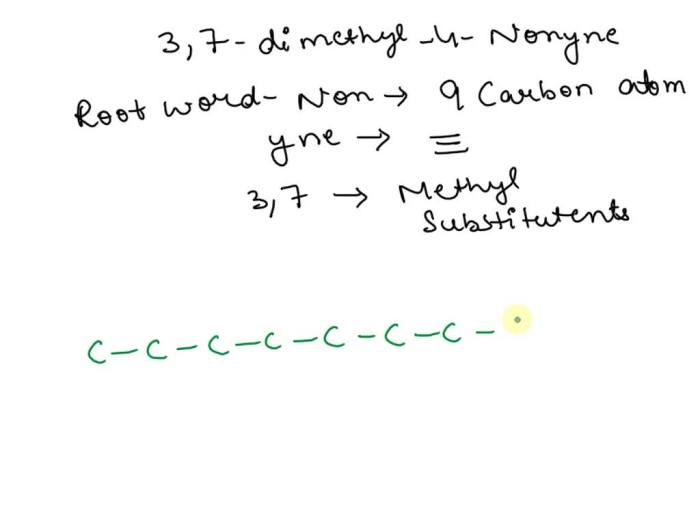 3,7-dimethyl-4-Nonyne
Root word- Non → 9 Carbon atom
yne → ≡
3,7 → Methyl
Substitutents
C-C-C-C-C-C-C-